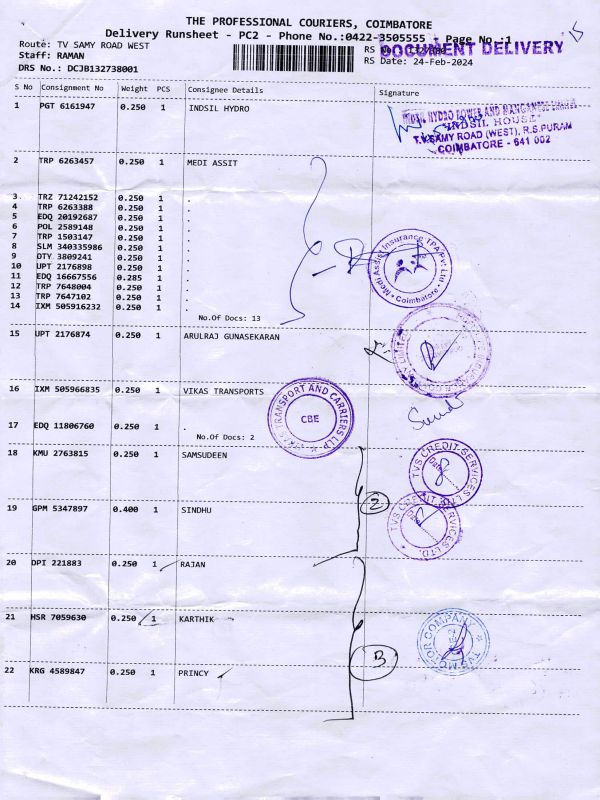 THE PROFESSIONAL COURIERS, COIMBATORE
Delivery Runsheet - PC2 - Phone No.:0422-3505555 - Page No.:1
15
Route: TV SAMY ROAD WEST
RS No
DOCUMENT DELIVERY
Staff: RAMAN
RS Date: 24-Feb-2024
DRS No.: DCJB132738001
S No Consignment No Weight PCS Consignee Details Signature
1 PGT 6161947 0.250 1 INDSIL HYDRO
INDSIL HYDRO POWER AND MANGANESE LIMITED
"INDSIL HOUSE"
T.V.SAMY ROAD (WEST), R.S.PURAM
COIMBATORE - 641 002
2 TRP 6263457 0.250 1 MEDI ASSIT
3 TRZ 71242152 0.250 1 .
4 TRP 6263388 0.250 1 .
5 EDQ 20192687 0.250 1 .
6 POL 2589148 0.250 1 .
7 TRP 1503147 0.250 1 .
8 SLM 340335986 0.250 1 .
9 DTY 3809241 0.250 1 .
10 UPT 2176898 0.250 1 .
11 EDQ 16667556 0.285 1 .
12 TRP 7648004 0.250 1 .
13 TRP 7647102 0.250 1 .
14 IXM 505916232 0.250 1 .
No.Of Docs: 13
Medi Assist Insurance TPA Pvt Ltd
Coimbatore
15 UPT 2176874 0.250 1 ARULRAJ GUNASEKARAN
16 IXM 505966835 0.250 1 VIKAS TRANSPORTS
17 EDQ 11806760 0.250 1 .
No.Of Docs: 2
TRANSPORT AND CARRIERS LLP
CBE
18 KMU 2763815 0.250 1 SAMSUDEEN
TVS CREDIT SERVICES LTD.
19 GPM 5347897 0.400 1 SINDHU
2
TVS CREDIT SERVICES LTD.
20 DPI 221883 0.250 1 RAJAN
21 HSR 7059630 0.250 1 KARTHIK
TVS MOTOR COMPANY
3
22 KRG 4589847 0.250 1 PRINCY